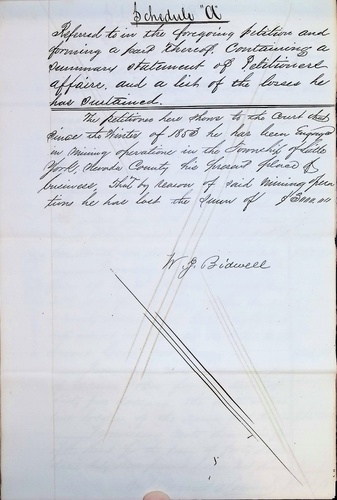 Schedule "A"
Refered to in the foregoing petition and
forming a part thereof, Containing a
summary statement of Petitioners
affairs, and a list of the losses he
has sustained.
The petitioner here shows to the Court that
since the Winter of 1853 he has been Engaged
in Mining operations in the Township of Little
York, Nevada County his present place of
business, That by reason of said Mining opera
tions he has lost the Sum of
W. J. Bidwell